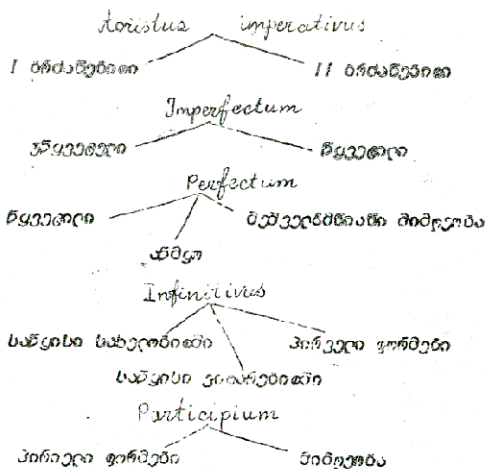 Aoristus imperativus
I ბრძანებითი II ბრძანებითი
Imperfectum
უწყვეტელი წყვეტილი
Perfectum
წყვეტილი მეშველზმნიანი მიმღეობა
აწმყო
Infinitivus
საწყისი სახელობითში პირველი ფორმები
საწყისი ვითარებითში
Participium
პირველი ფორმები მიმღეობა